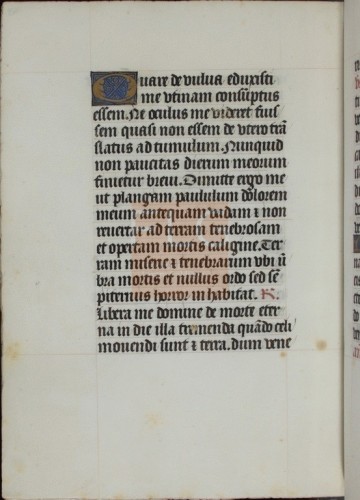 Quare de vulua eduxisti
me vtinam consūptus
essem. Ne oculus me videret fuis
sem quasi non essem de vtero trā
slatus ad tumulum. Nunquid
non paucitas dierum meorum
finietur breui. Dimitte ergo me
ut plangam paululum dolorem
meum antequam vadam ⁊ non
reuertar ad terram tenebrosam
et opertam mortis caligine. Ter
ram miserie ⁊ tenebrarum vbi ū
bra mortis et nullus ordo sed sē
piternus horror in habitat. R.
Libera me domine de morte eter
na in die illa tremenda quādo celi
mouendi sunt ⁊ terra. dum vene